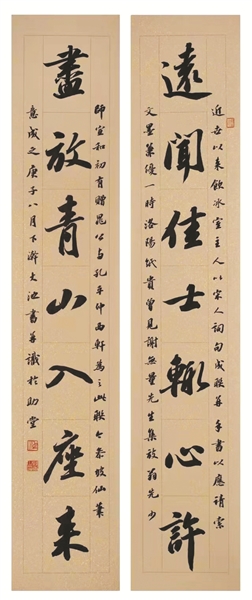 近世以來飲冰室主人以宋人詞句成聯並手書以應請索
遠聞佳士輒心許
文墨兼優一時洛陽帋貴曾見謝無量先生集放翁先少
師室和初育贈昆公與孔平仲西軒為之此聯今忝坡仙筆
盡放青山入座來
意成之庚子八月下澣大池書並識於助堂